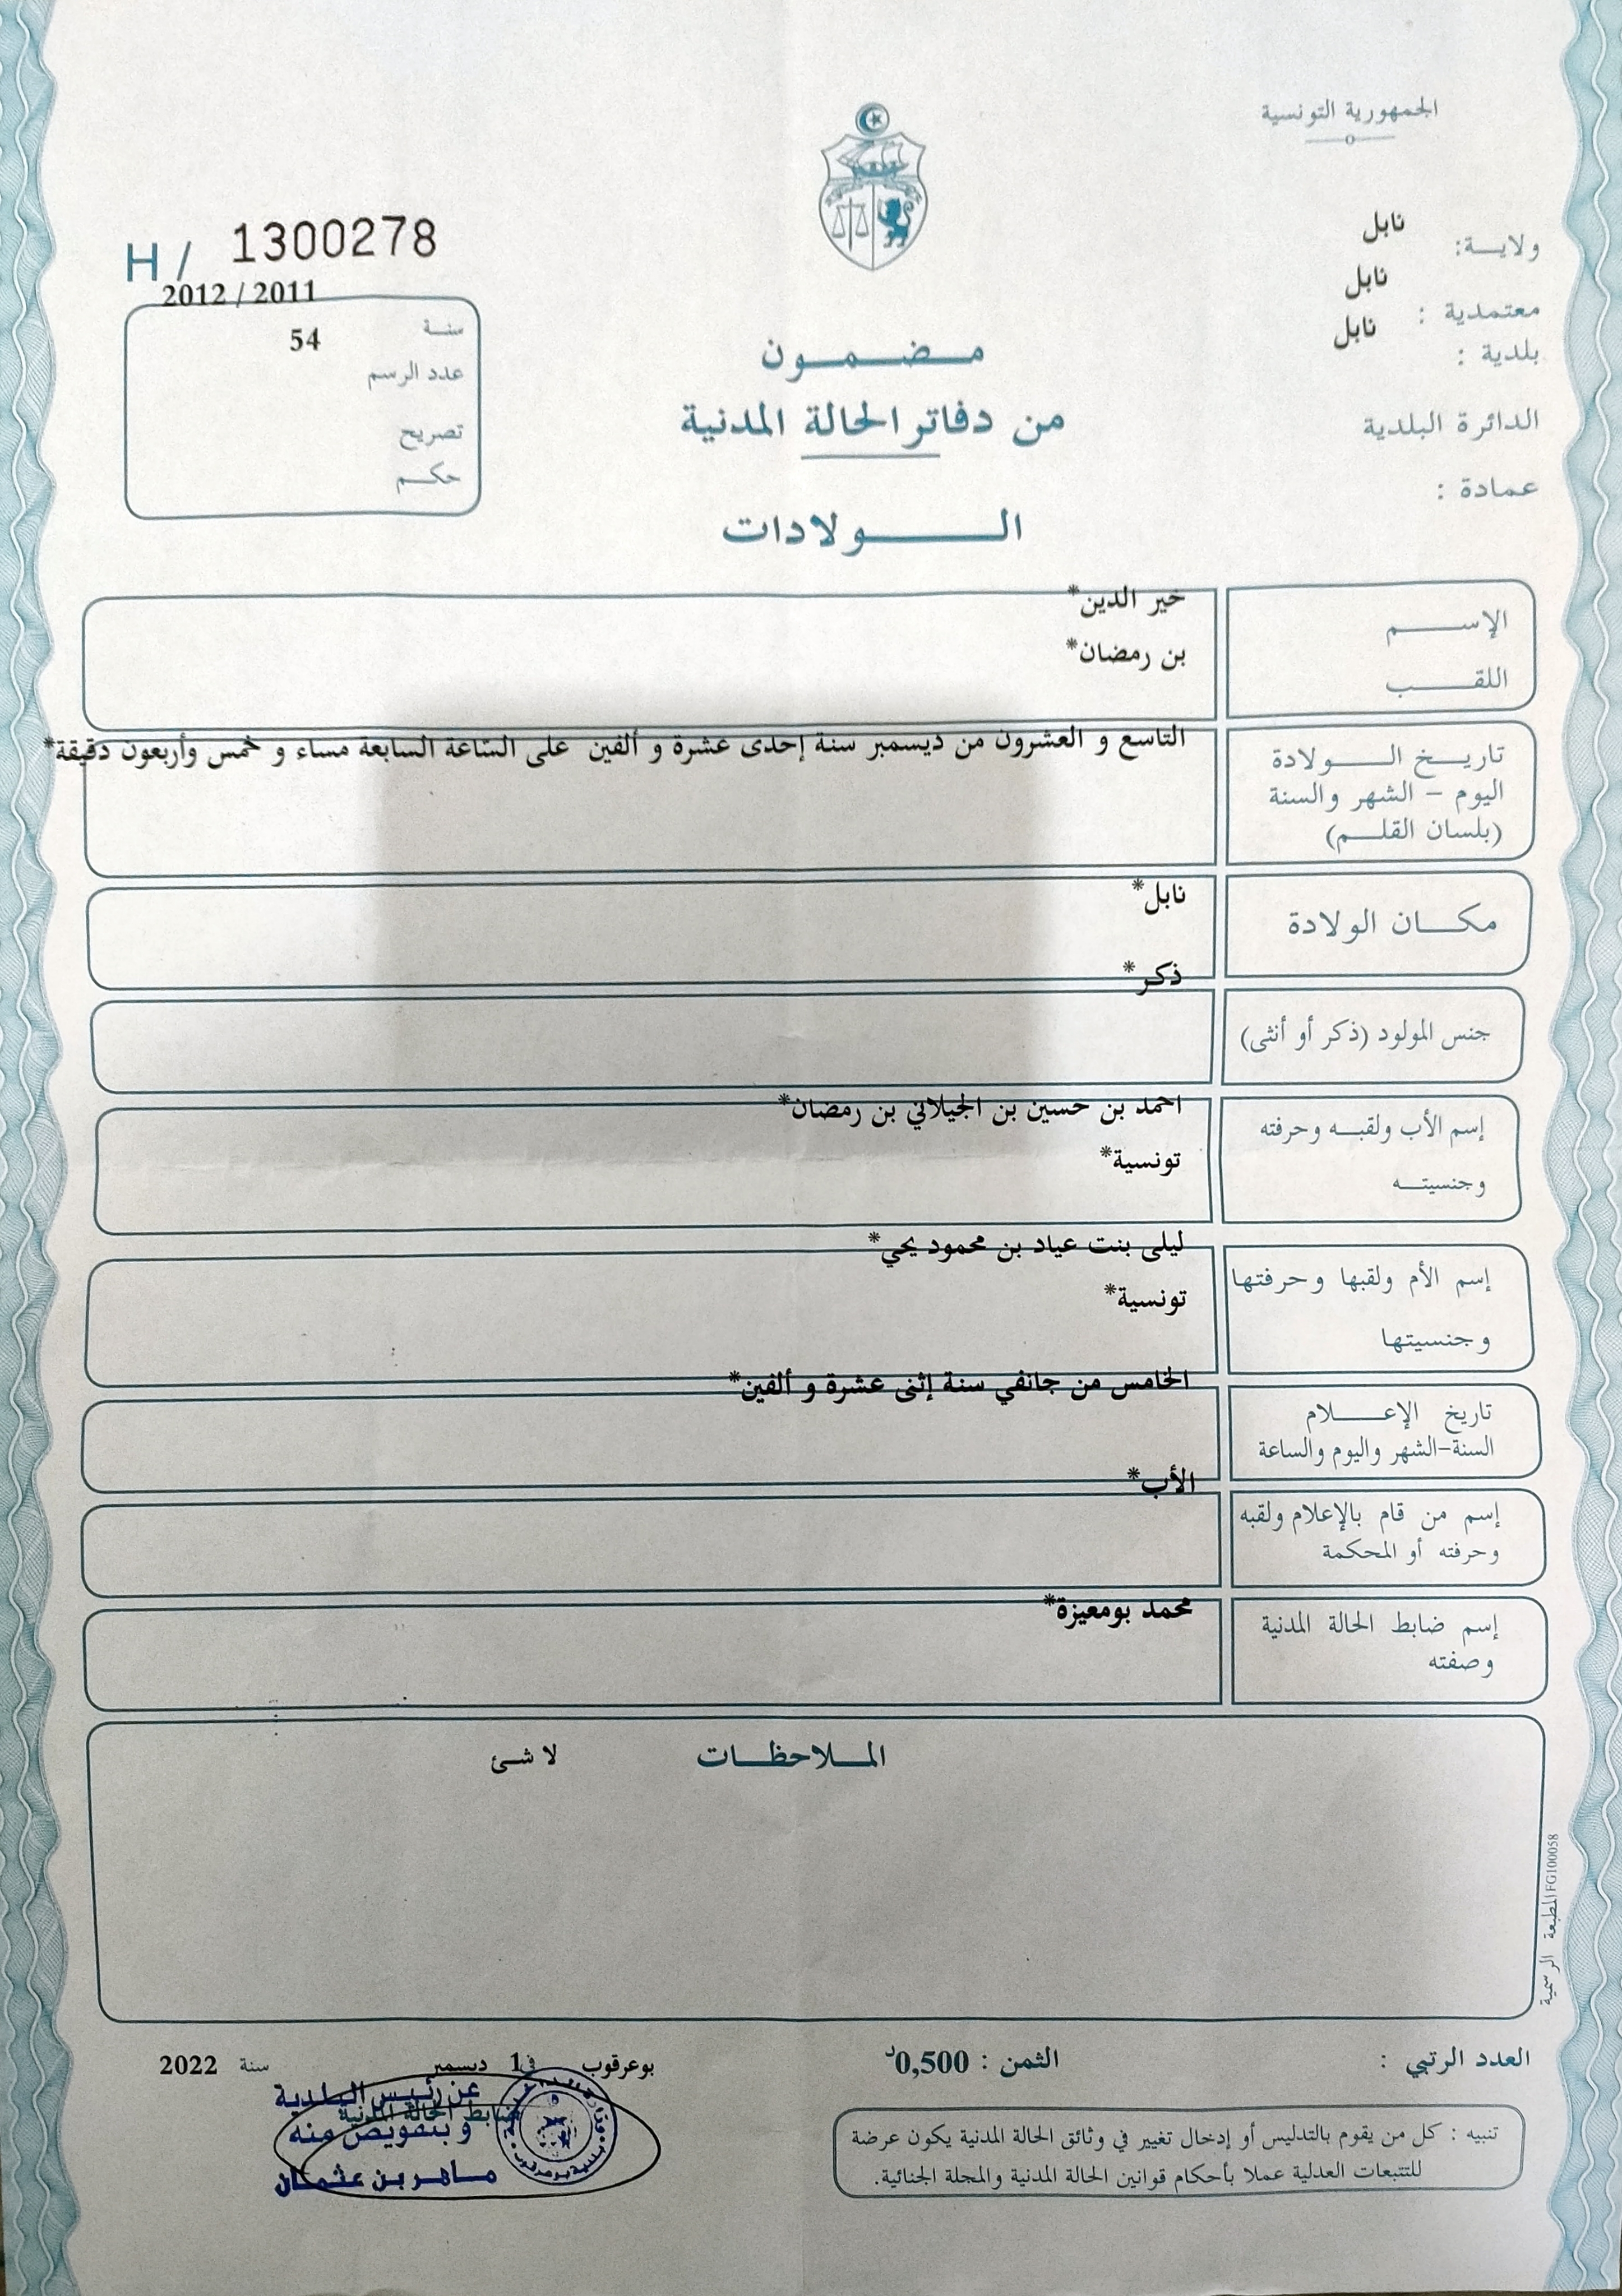 الجمهورية التونسية
ولاية: نابل
معتمدية : نابل
بلدية : نابل
الدائرة البلدية
عمادة :
H / 1300278
2012 / 2011
سنة
54
عدد الرسم
تصريح
حكم
مضمون
من دفاتر الحالة المدنية
الولادات
الإسم
خير الدين*
اللقب
بن رمضان*
تاريخ الولادة
اليوم - الشهر والسنة
(بلسان القلم)
التاسع و العشرون من ديسمبر سنة إحدى عشرة و ألفين على السّاعة السابعة مساء و خمس وأربعون دقيقة*
مكان الولادة
نابل*
جنس المولود (ذكر أو أنثى)
ذكر*
إسم الأب ولقبه وحرفته
وجنسيته
احمد بن حسين بن الجيلاني بن رمضان*
تونسية*
إسم الأم ولقبها وحرفتها
وجنسيتها
ليلى بنت عياد بن محمود يحي*
تونسية*
تاريخ الإعلام
السنة-الشهر واليوم والساعة
الخامس من جانفي سنة إثنى عشرة و ألفين*
إسم من قام بالإعلام ولقبه
وحرفته أو المحكمة
الأب*
إسم ضابط الحالة المدنية
وصفته
محمد بومعيزة*
الملاحظات
لا شئ
المطبعة الرسمية FG100058
العدد الرتبي :
الثمن : 0,500د
بوعرقوب في 1 ديسمبر سنة 2022
ضابط الحالة المدنية
عن رئيس البلدية
و بتفويض منه
ماهر بن عثمان
تنبيه : كل من يقوم بالتدليس أو إدخال تغيير في وثائق الحالة المدنية يكون عرضة
للتتبعات العدلية عملا بأحكام قوانين الحالة المدنية والمجلة الجنائية.